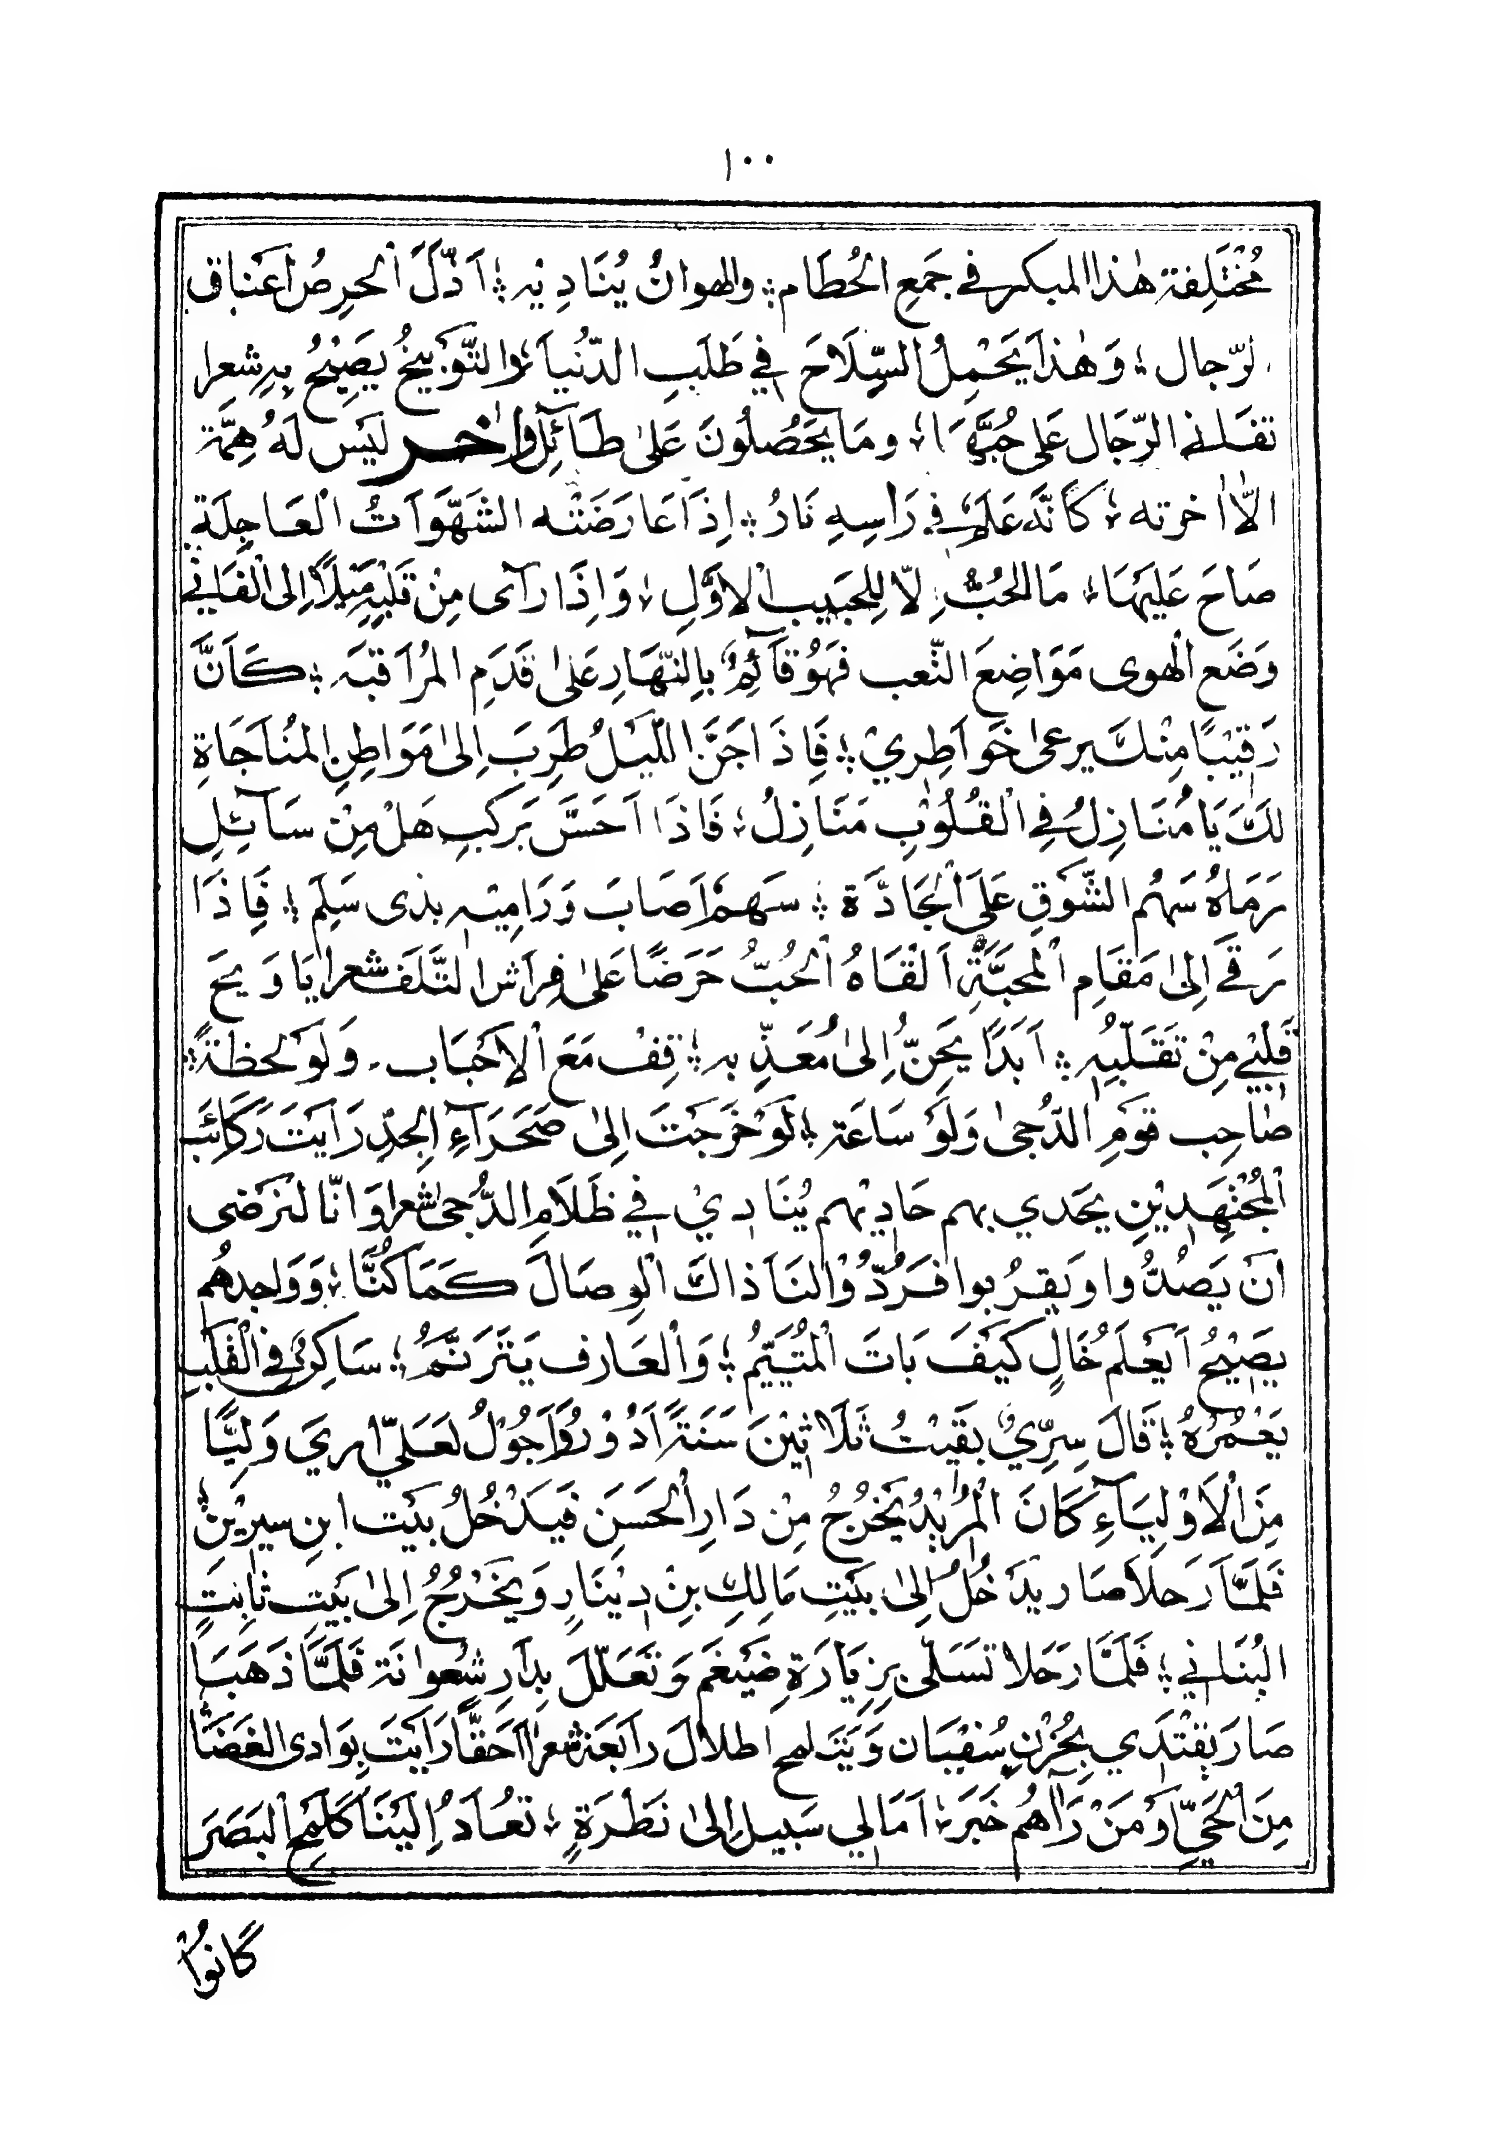 ١٠٠
مُخْتَلِفة هٰذا المبكر في جَمعِ الحُطَام ؛ والهوانُ يُنَادِيْهِ ؛ اَذَلَّ الحِرصُ اَعناق
الرّجال ؛ وَهٰذا يَحْمِلُ السِّلَاحَ فِي طَلَبِ الدُّنْيَا ؛ وَالتَّوبيخُ يَصِيْحُ بِهِ شعرا
تفانى الرّجال على حُبَّهَا ؛ ومَا يَحَصُلُونَ عَلىٰ طَآئِلٍ وٰاخر لَيْس لَهُ هِمَّة
الَّا اٰخرته ؛ كَانَّهُ عَلَمٌ في رَاسِهِ نَارُ ؛ اِذَا عَارَضَتْه الشَهَّوَاتُ الْعَاجِلَة
صَاحَ عَلَيْهَا ؛ مَا الحُبُّ اِلّا لِلحَبِيبِ الْاَوَّلِ ؛ وَاِذَا رآى مِنْ قَلْبِهِ مَيْلًا اِلى الْفَانِي
وَضَع الْهوى مَوَاضِعَ التَّعب فَهُوَ قَآئِمٌ بِالنَّهَارِ عَلىٰ قَدَمِ المُرَاقبَه ؛ كَاَنَّ
رَقِيْبًا مِنْكَ يرعىٰ خَوَاطِرِيْ ؛ فَاِذَا جَنَّ اللَّيْلُ طَرِبَ اِلىٰ مَوَاطِنِ المنَاجَاةِ
لكَ يَا مُنَازِلُ فِي الْقُلُوْبِ مَنَازِلُ ؛ فَاِذَا اَحَسَّ بَركبِ هَلْ مِنْ سَآئِلٍ
رَمَاهُ سَهْمُ الشَّوقِ عَلَى الْجَادَّة ؛ سَهمٌ اَصَابَ وَرَامِيْهِ بذى سَلَمِ ؛ فَاِذَا
رَقى اِلىٰ مَقَامِ الْمَحبَّةِ اَلْقَاهُ الْحُبُّ حَرَضًا عَلىٰ فِراشِ التَّلَفِ شعرا يَا وَيحَ
قَلْبِي مِنْ تَقَلّبِهِ ؛ اَبَدًا يَحِنُّ اِلىٰ مُعَذِّبِه ؛ قِفْ مَعَ الْاَحْبَاب ـ وَلَو لحظةً ؛
صَاحِب قومِ الدُّجىٰ وَلَوْ سَاعَة ؛ لَوْ خَرَجْتَ اِلىٰ صَحَرَآءِ الجِدِّ رَاَيْتَ رَكَائبَ
الْمُجْتَهِدِيْنِ يَحْدي بهم حَادِيْهم يُنَادِيْ فِي ظَلَامِ الدُّجىٰ شعرا وَانّا لنَرْضى
اَنْ يَصُدُّوا او يَقِرُبوا فَرُدُّوْا لنَا ذاكَ الْوِصَالَ كَمَا كُنَّا ؛ وَوَاجدهُم
يَصِيْحُ اَيَعْلَم خَالٍ كَيْفَ بَاتَ الْمُتَيَّمُ ؛ وَالْعَارِف يَتَرَنَّمُ ؛ سَاكِنٌ فِي الْقَلْبِ
يَعْمُرُهُ ؛ قَالَ سِرِّيٌ بَقَيْتُ ثَلَاثِيْنَ سَنَةً اَدُوْرُ وَاَجُوْلُ لَعَلّي اَرىَ وَلِيًّا
مِنَ الْاَوْلِيَآءِ كَانَ الْمُرِيْدُ يَخْرُجُ مِنْ دَارِ الْحَسَنِ فَيَدْخُلُ بَيْت ابنِ سيرِيْن ؛
فَلَمَّا رَحَلَا صَار يَدْخُلُ اِلىٰ بَيْتِ مَالِكِ بنِ دِيْنَارٍ وَيَخْرُجُ اِلىٰ بَيْتِ ثَابِتٍ
البُنَانِي ؛ فَلَمَّا رَحَلا تَسَلّى بِزِيَارَةِ ضَيْغَم وَتَعَلَّلَ بِدَارِ شَعوانَة فَلَمَّا ذَهَبَا
صَارَ يَقْتَدِي بِحُزْنِ سُفْيَان وَيَتَلمح اطلالَ رَابَعَة شعرا اَحَقًّا رَاَيْتَ بِوَادى الغَضَا
مِنَ الْحَيِّ اَوْ مَنْ رَاٰهُم خَبَرَ ؛ اَمَا لي سَبِيلٌ اِلىٰ نَظْرَةٍ ؛ تعُادُ اِلَيْنَا كَلَمْحِ الْبَصَرَ
كَانوْا